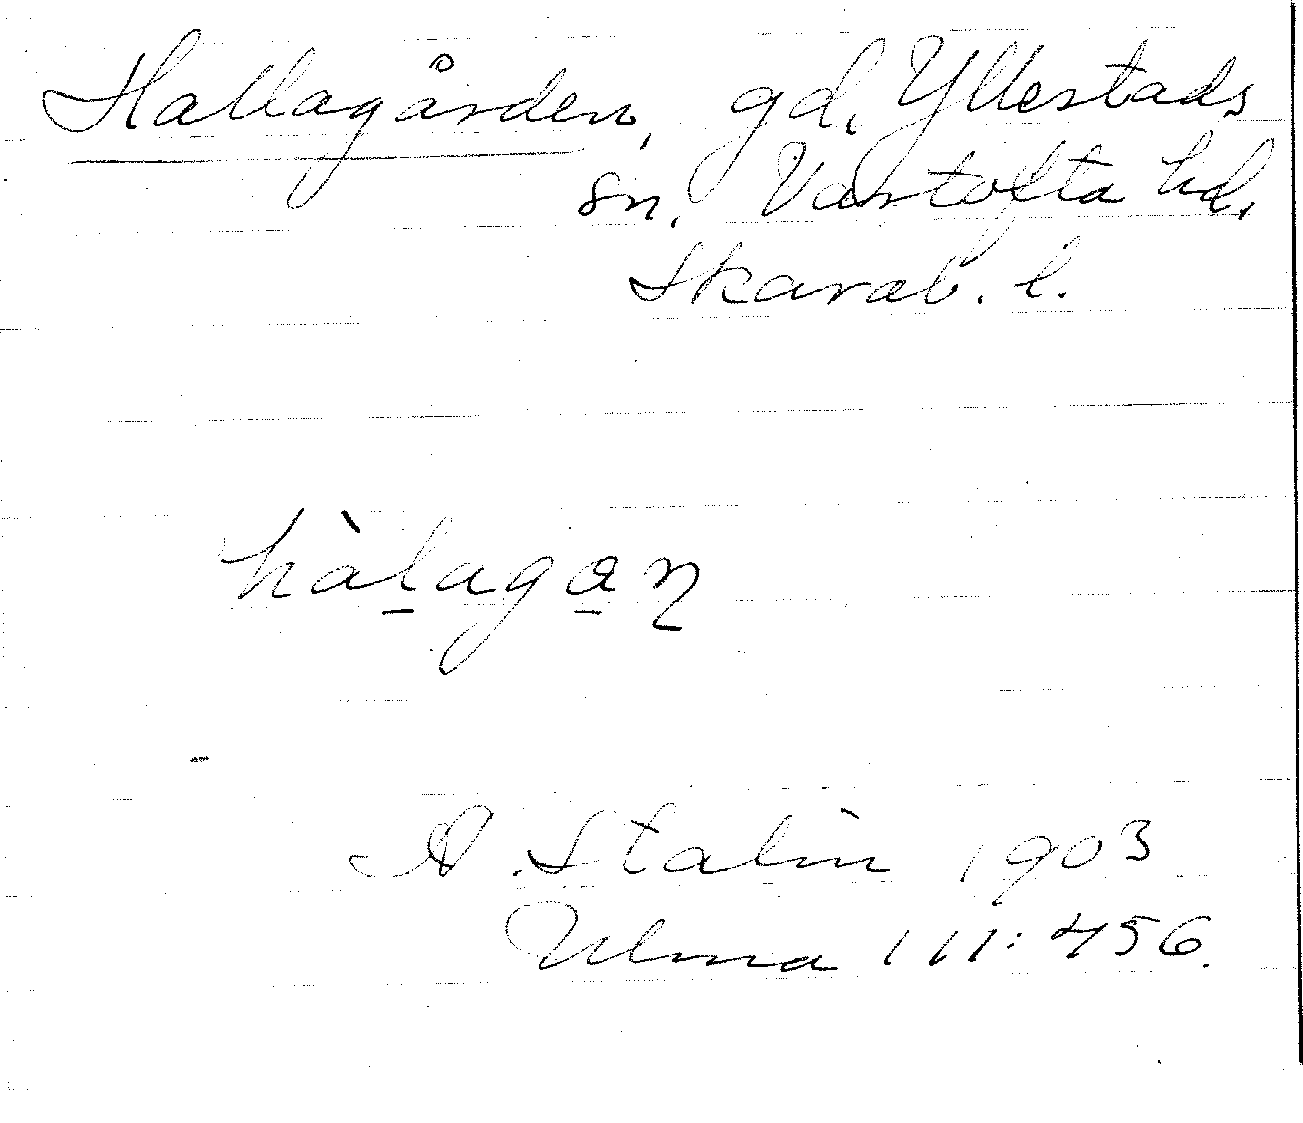 Hallagården, gd, Yllestads
sn, Vartofta hd,
Skarab. l.
hàl̠aga̠ɳ
A Stalin 1903
Ulma 111:456.